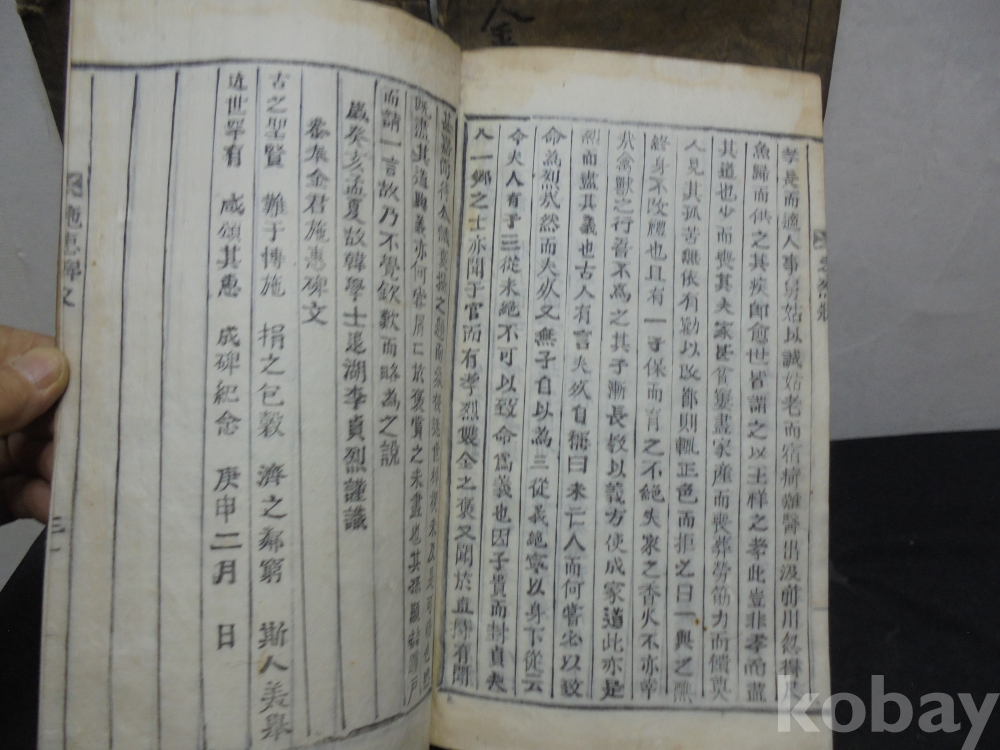 金
孝長而適人事舅姑以誠姑老而宿痾難醫出汲前川忽得大
魚歸而供之其疾卽愈世皆謂之以王祥之孝此豈非孝而盡
其道也少而喪其夫家甚貧窶盡家産而喪葬勞筋力而饋奠
人見其孤苦無依有勸以改鄙則輒正色而拒之曰一與之醮
終身不改禮也且有一子保而育之不絶夫家之香火不亦幸
犬禽獸之行吾不爲之其子漸長敎以義方使成家道此亦是
烈而盡其義也古人有言夫歿自稱曰未亡人而何嘗必以致
命為烈哉然而夫歿又無子自以為三從義絶寧以身下從云
今夫人有子三從未絶不可以致命爲義也因子貴而封貞夫
人一鄕之士亦聞于官而有孝烈雙全之褒又聞於直降有聞
旣潔其道與義亦何害
而請一言故乃不覺欽歎而略為之說
歲癸亥孟夏故韓學士退湖李貞烈謹識
金君施惠碑文
古之聖賢 難于博施 捐之包穀 濟之鄰窮 斯人美擧
近世罕有 咸頌其惠 成碑紀念 庚申二月 日
施惠碑文
kobay